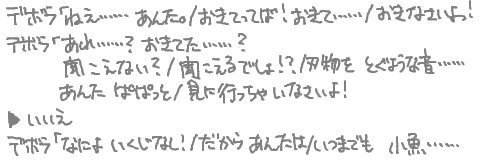 デボラ「ねえ……あんた。/おきてってば！おきて……/おきなさいよっ！
デボラ「あれ……？おきてた……？
聞こえない？/聞こえるでしょ！？/刃物を とぐような音……
あんた ぱぱっと/見に行っちゃいなさいよ！
▶いいえ
デボラ「なによ いくじなし！/だから あんたは/いつまでも 小魚……